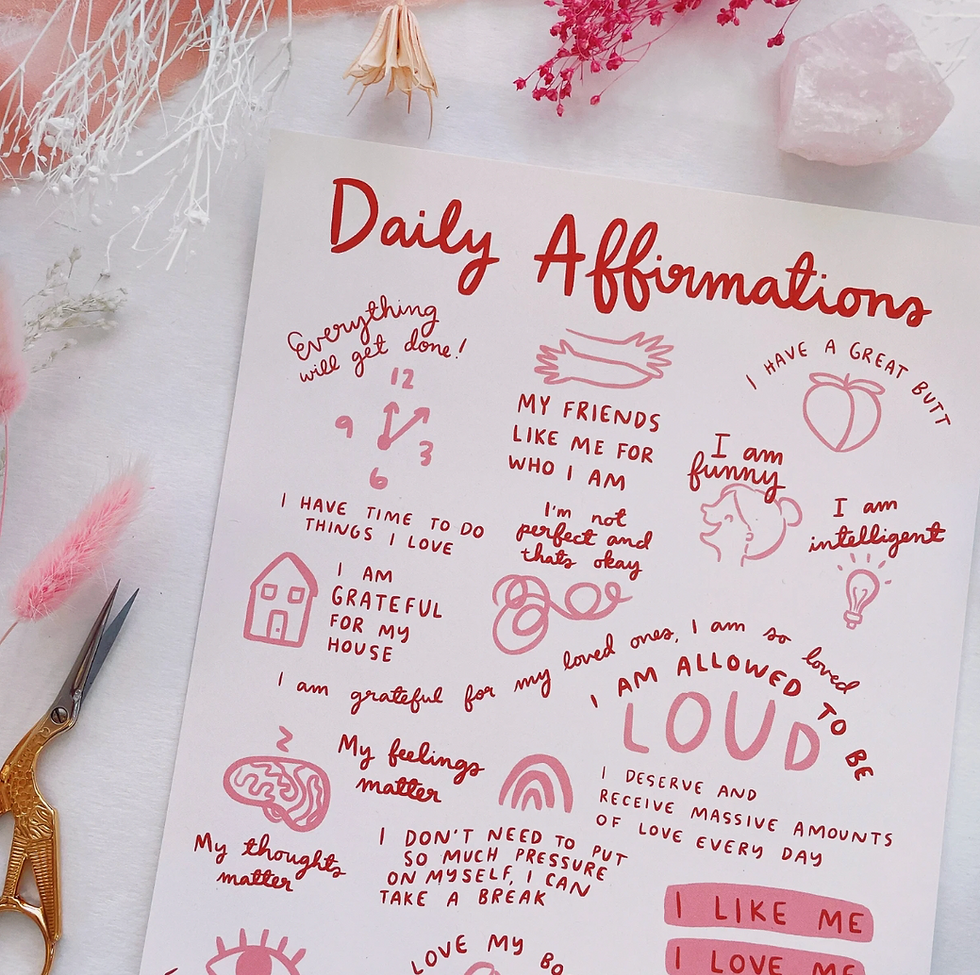 Daily Affirmations
Everything
will get done!
12
9
3
6
I HAVE TIME TO DO
THINGS I LOVE
MY FRIENDS
LIKE ME FOR
WHO I AM
I HAVE A GREAT BUTT
I am
funny
I am
intelligent
I'm not
perfect and
thats okay
I AM
GRATEFUL
FOR MY
HOUSE
I am grateful for my loved ones, I am so loved
I AM ALLOWED TO BE
LOUD
My feelings
matter
My thoughts
matter
I DESERVE AND
RECEIVE MASSIVE AMOUNTS
OF LOVE EVERY DAY
I DON'T NEED TO PUT
SO MUCH PRESSURE
ON MYSELF, I CAN
TAKE A BREAK
I LIKE ME
I LOVE ME
LOVE MY